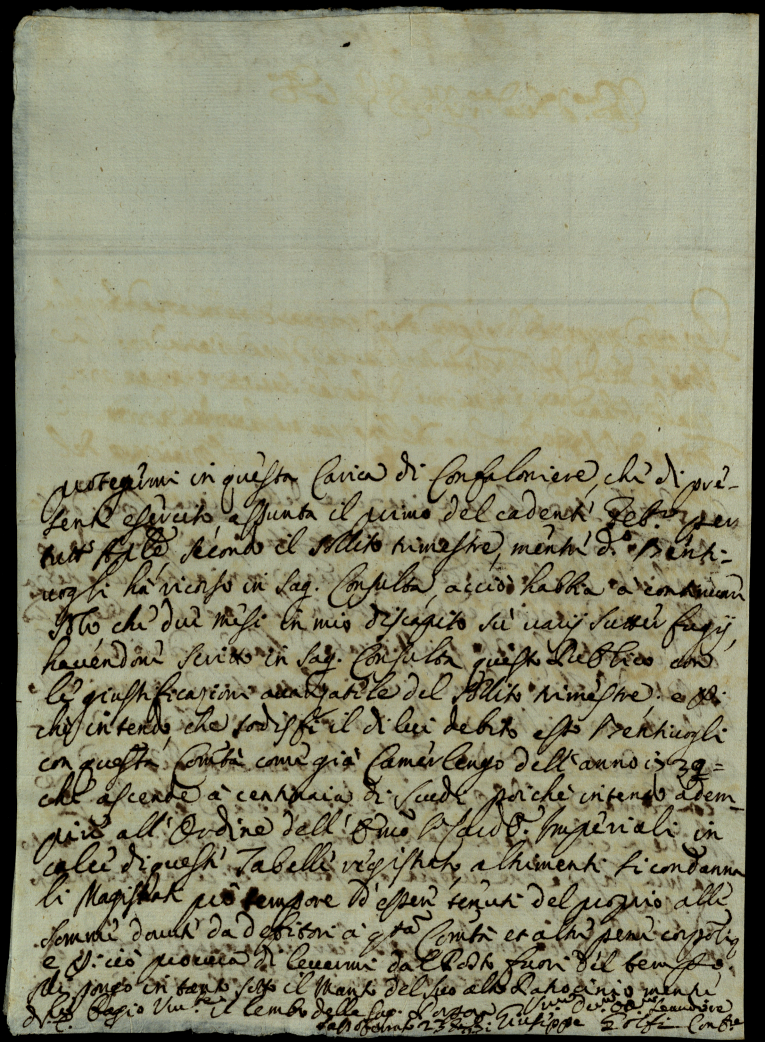 protegermi in questa Carica di Confaloniere, che di pre-
sente esercito, assunta il primo del cadente Feb.º per
tutto Aple, secondo il sollito trimestre, mentre d.º Benti-
vogli hà ricorso in Sag. Consulta, acciò habbia à continuare
solo che due mesi in mio discapito sù varij sutterfugij,
havendone scritto in Sag. Consulta questo Pubblico con
le giustificazioni del sollito trimestre: e
che intendo, che sodisfi il di lui debito esso Bentivogli
con questa Comtà come già Camerlengo dell'anno 1739=
che ascende à centinaia di scudi, poiche intendo adem-
pire all'Ordine dell' Imperiali in
calce di queste Tabelle registrato, altrimenti si condanna
li Magistrati pro tempore d'essere tenuti del proprio alle
somme dovute da debitori à qta Comtà et altre pene
e di ciò procura di levarmi dal Posto fuori del tempo.
Mi pongo in tanto sotto il Manto del suo alto Patrocinio mentre
bagio il lembo della Sag. Porpora
Giuseppe Confre